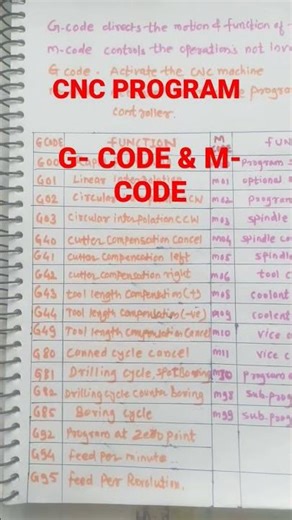 G-code directs the motion & function of
m-code controls the operations not
G code - Activate the CNC machine
CNC PROGRAM
progra
controller.
G- CODE & M-
CODE
GCODE FUNCTION M FUN
G00 m00 program
G01 Linear m01 optional s
G02 Circular m02 progra
G03 Circular interpolation CCW m03 spindle
G40 cutter compensation cancel m04 spindle co
G41 cutter compensation left m05 spindl
G42 cutter compensation right m06 tool c
G43 tool length compensation m08 coolant
G44 Tool length compensation (-ve) m09 coolent
G49 Tool length compensation cancel m10 vice o
G80 Canned cycle cancel m11 vice c
G81 Drilling cycle, spot Boring m30 program
G82 Drilling cycle counter Boring m98 sub-prog
G85 Boring cycle m99 sub-prog
G92 Program at zero point
G94 feed per minute
G95 feed Per Revolution.